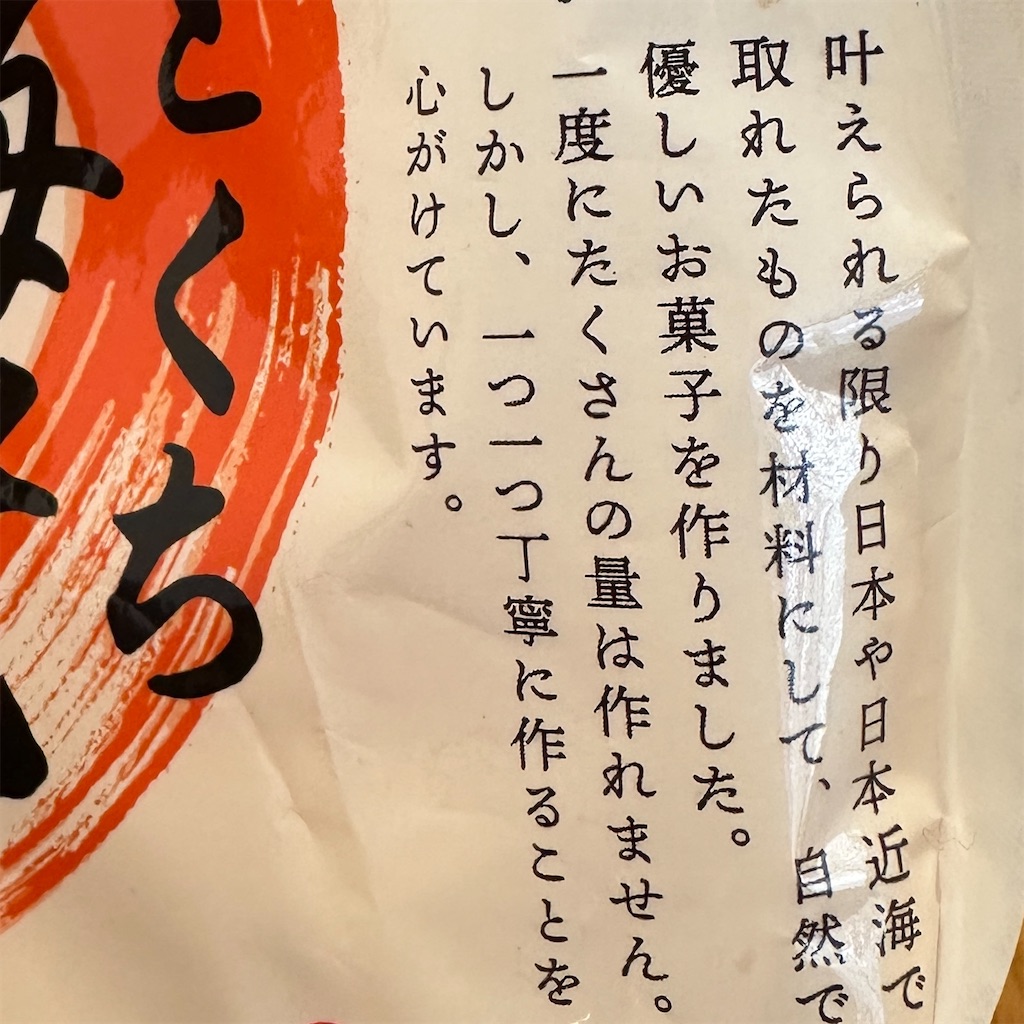 叶えられる限り日本や日本近海で
取れたものを材料にして、自然で
優しいお菓子を作りました。
一度にたくさんの量は作れません。
しかし、一つ一つ丁寧に作ることを
心がけています。
とくち